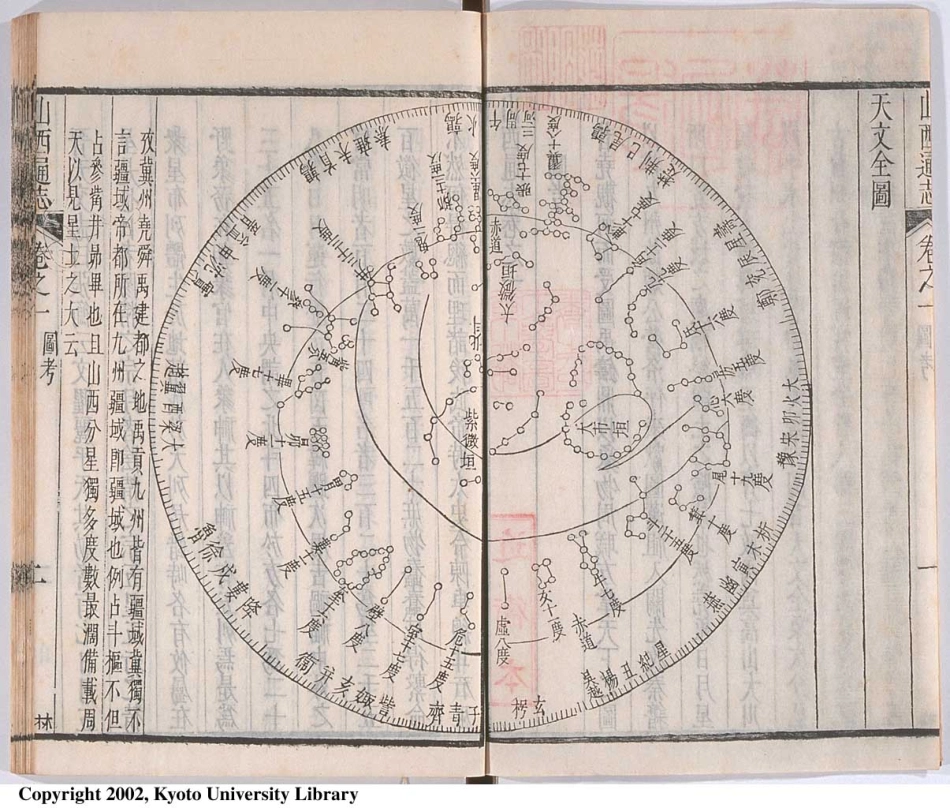 天文全圖
山西通志
卷之一
圖考
一
紫微垣
太微垣
天市垣
赤道
赤道
鶉火
午
三河
周
張十七度
翼十八度
鶉尾巳
荊州
壽星辰
兗
鄭
大火卯宋豫
析木寅幽燕
星紀丑揚吳越
玄枵
子青齊
娵訾亥并衛
降婁戌徐魯
大梁酉
趙
實沈申
晉
鶉首未雍秦
氐十六度
房五度
心六度
尾十九度
箕十度
斗二十五度
牛七度
女十一度
虛八度
危十五度
室十七度
壁八度
奎十六度
婁十二度
胃十五度
昴十一度
畢十七度
井三十三度
鬼二度
柳十三度
攷冀州堯舜禹建都之地禹貢九州皆有疆域冀獨不
言疆域帝都所在九州疆域即疆域也例占斗樞不但
占參觜井昴畢也且山西分星獨多度數最濶備載周
天以見星土之大云
山西通志
卷之一
圖考
林
Copyright 2002, Kyoto University Library